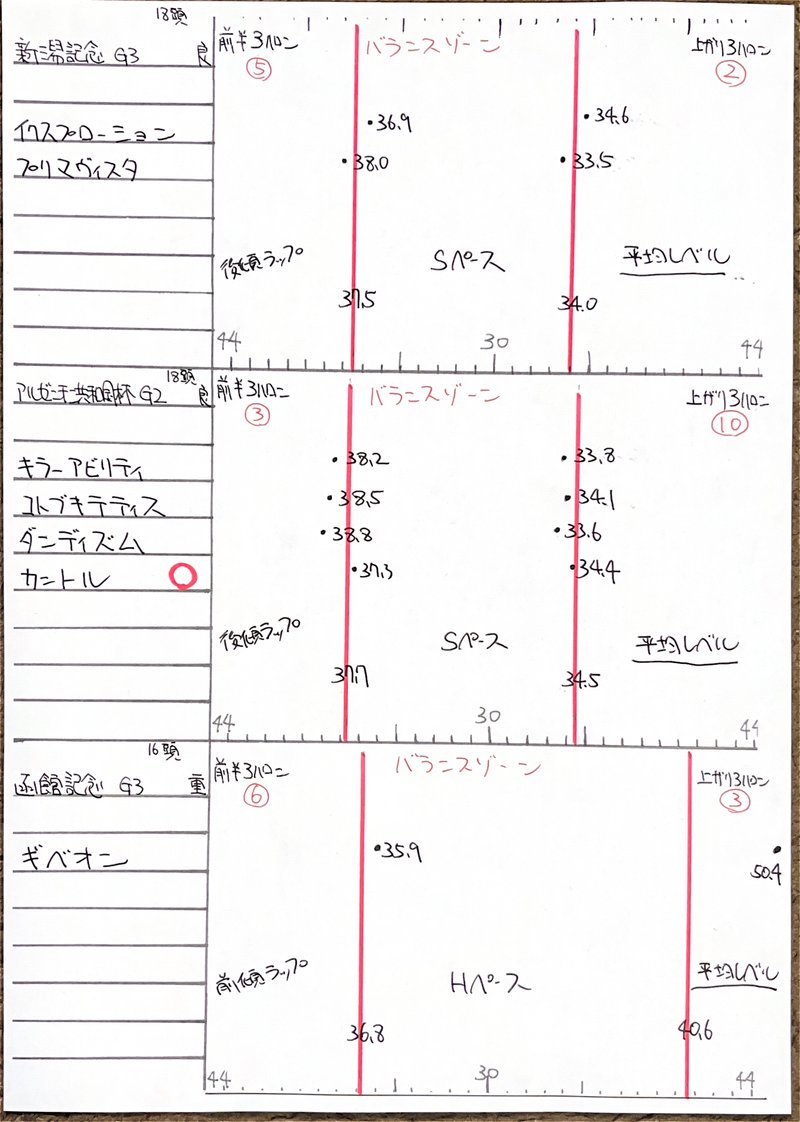 18頭
新潟記念 G3 良
前半3ハロン バランスゾーン 上がり3ハロン
⑤ ②
イクスプロージョン ・36.9 ・34.6
プリマヴィスタ ・38.0 ・33.5
後傾ラップ Sペース 平均レベル
37.5 34.0
44 30 44
18頭
アルゼンチン共和国杯 G2 良
前半3ハロン バランスゾーン 上がり3ハロン
③ ⑩
キラーアビリティ ・38.2 ・33.8
コトブキテティス ・38.5 ・34.1
ダンディズム ・38.8 ・33.6
カントル ○ ・37.3 ・34.4
後傾ラップ Sペース 平均レベル
37.7 34.5
44 30 44
16頭
函館記念 G3 重
前半3ハロン バランスゾーン 上がり3ハロン
⑥ ③
ギベオン ・35.9 ・50.4
前傾ラップ Hペース 平均レベル
36.8 40.6
44 30 44